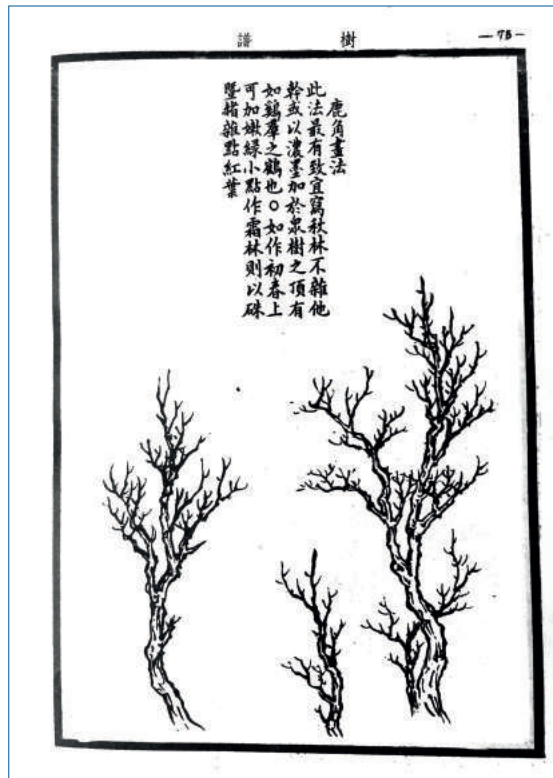 樹譜
— 73 —
鹿角畫法
此法最有致宜寫秋林不雜他
幹或以濃墨加於衆樹之頂有
如鷄羣之鶴也○如作初春上
可加嫩綠小點作霜林則以硃
暨赭雜點紅葉